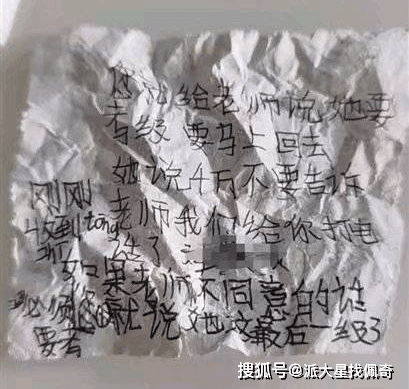 你就给老师说她要
考级 要马上回去
她说千万不要告诉
刚刚
老师我们给你打电
收到tong
话了
如果老师不同意的话
必须
就说她这最后一级了
要去
搜狐号@派大星找佩奇